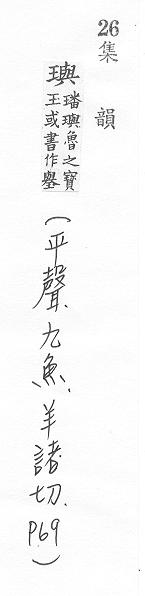 26
集韻
璵
璠璵魯之寶
玉或書作璺
(平聲.九魚.羊諸切.P.69)